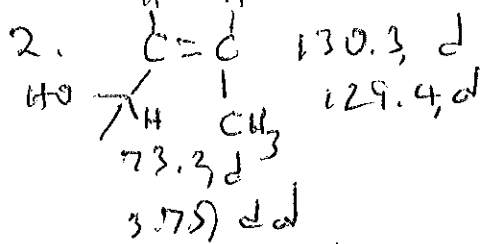 2. C = C 130.3, d
HO H CH3 129.4, d
73.2, d
3.75, dd